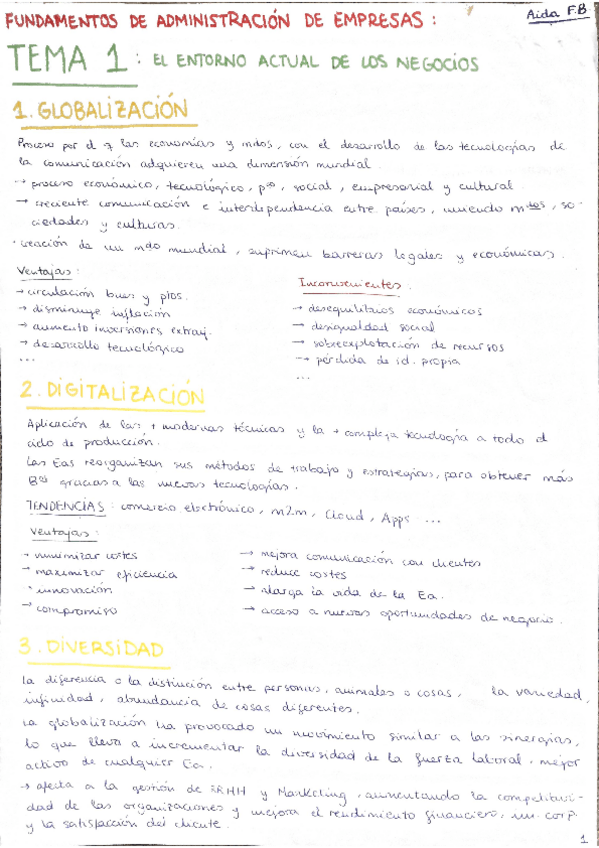 FUNDAMENTOS DE ADMINISTRACIÓN DE EMPRESAS :
Aida F.B
TEMA 1 : EL ENTORNO ACTUAL DE LOS NEGOCIOS
1. GLOBALIZACIÓN
Proceso por el q las economías y mdos, con el desarrollo de las tecnologías de
la comunicación adquieren una dimensión mundial.
→ proceso económico, tecnológico, pco, social, empresarial y cultural.
→ creciente comunicación e interdependencia entre países, uniendo mdos, so-
ciedades y culturas.
· creación de un mdo mundial, suprimen barreras legales y económicas.
Ventajas :
→ circulación bienes y ptos.
→ disminuye inflación
→ aumento inversiones extranj.
→ desarrollo tecnológico
...
Inconvenientes.
→ desequilibrios económicos
→ desigualdad social
→ sobreexplotación de recursos
→ pérdida de id. propia
...
2. DIGITALIZACIÓN
Aplicación de las + modernas técnicas y la + compleja tecnología a todo el
ciclo de producción.
Las Eas reorganizan sus métodos de trabajo y estrategias, para obtener más
Bos gracias a las nuevas tecnologías.
TENDENCIAS : comercio electrónico, m2m, Cloud, Apps ...
Ventajas :
→ minimizar costes
→ maximizar eficiencia
· innovación
→ compromiso
→ mejora comunicación con clientes
→ reduce costes
→ alarga la vida de la Ea.
→ acceso a nuevas oportunidades de negocio.
3. DIVERSIDAD
La diferencia o la distinción entre personas, animales o cosas, la variedad,
infinidad, abundancia de cosas diferentes.
La globalización ha provocado un movimiento similar a las sinergias,
lo que lleva a incrementar la diversidad de la fuerza laboral, mejor
activo de cualquier Ea.
→ afecta a la gestión de RRHH y Marketing, aumentando la competitivi-
dad de las organizaciones y mejora el rendimiento financiero, im. corp.
y la satisfacción del cliente.
1